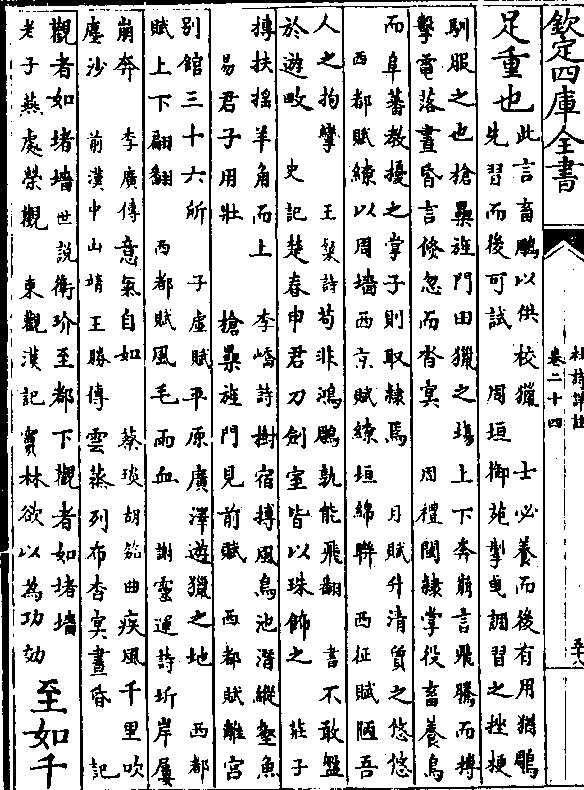 欽定四庫全書
杜詩詳註
卷二十四
足重也
此言畜鵰以供校獵 士必養而後有用猶鵰
先習而後可試 周垣御苑掣曳調習之挫梗
馴服之也槍櫐旌門田獵之塲上下奔崩言飛騰而摶
擊電落晝昏言倏忽而杳冥 周禮閩隷掌役畜養鳥
而阜蕃教擾之掌子則取隷焉 月賦升清質之悠悠
西都賦繚以周墻西京賦繚垣綿聯 西征賦陋吾
人之拘攣 王粲詩苟非鴻鵰孰能飛翻 書不敢盤
於遊畋 史記楚春申君刀劍室皆以珠飾之 莊子
摶扶搖羊角而上 李嶠詩樹宿摶風鳥池潛縱壑魚
易君子用壯 槍櫐旌門見前賦 西都賦離宮
别館三十六所 子虛賦平原廣澤遊獵之地 西都
賦上下翩翻 西都賦風毛雨血 謝靈運詩圻岸屢
崩奔 李廣傳意氣自如 蔡琰胡笳曲疾風千里吹
塵沙 前漢中山靖王勝傳雲蒸列布杳冥晝昏 記
觀者如堵墻 世說衛玠至都下觀者如堵墻
老子燕處榮觀 東觀漢記竇林欲以為功効
至如千